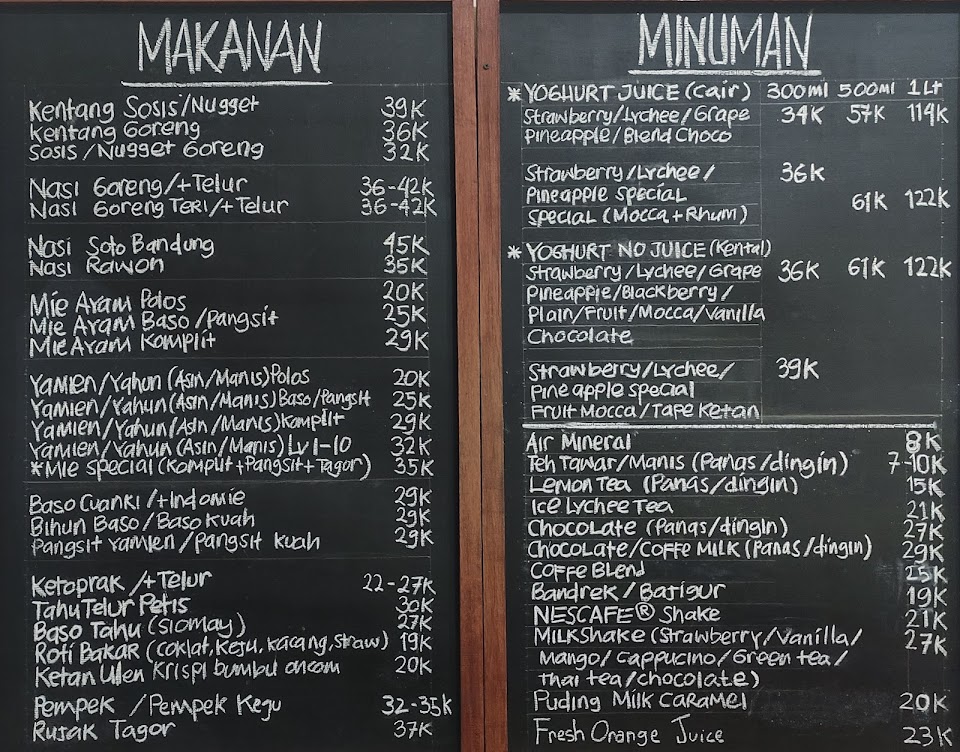 MAKANAN
Kentang Sosis/Nugget 39K
Kentang Goreng 36K
Sosis/Nugget Goreng 32K
Nasi Goreng/+Telur 36-42K
Nasi Goreng TERI/+Telur 36-42K
Nasi Soto Bandung 45K
Nasi Rawon 35K
Mie Ayam Polos 20K
Mie Ayam Baso/Pangsit 25K
Mie Ayam Komplit 29K
Yamien/Yahun (Asin/Manis) Polos 20K
Yamien/Yahun (Asin/Manis) Baso/Pangsit 25K
Yamien/Yahun (Asin/Manis) Komplit 29K
Yamien/Yahun (Asin/Manis) Lv 1-10 32K
*Mie special (Komplit+Pangsit+Tagor) 35K
Baso Cuanki/+Indomie 29K
Bihun Baso/Baso Kuah 29K
Pangsit Yamien/Pangsit Kuah 29K
Ketoprak/+Telur 22-27K
Tahu Telur Petis 30K
Baso Tahu (Siomay) 27K
Roti Bakar (coklat, Keju, kacang, straw) 19K
Ketan Ulen Krispi bumbu oncom 20K
Pempek /Pempek Keju 32-35K
Rujak Tagor 37K
MINUMAN
*YOGHURT JUICE (Cair) 300ml 500ml 1Lt
Strawberry/Lychee/Grape 34K 57K 114K
Pineapple/Blend Choco
Strawberry/Lychee/ 36K
Pineapple special 61K 122K
Special (Mocca+Rhum)
*YOGHURT NO JUICE (Kental)
Strawberry/Lychee/Grape 36K 61K 122K
Pineapple/Blackberry/
Plain/Fruit/Mocca/Vanilla
Chocolate
Strawberry/Lychee/ 39K
Pineapple special
Fruit Mocca/Tape Ketan
Air Mineral 8K
Teh Tawar/Manis (Panas/dingin) 7-10K
Lemon Tea (Panas/dingin) 15K
Ice Lychee Tea 21K
Chocolate (Panas/dingin) 27K
Chocolate/Coffe Milk (Panas/dingin) 29K
Coffe Blend 25K
Bandrek/Batigur 19K
NESCAFE® Shake 21K
Milkshake (Strawberry/Vanilla/ 27K
Mango/Cappucino/Green tea/
Thai tea/chocolate)
Puding Milk Caramel 20K
Fresh Orange Juice 23K